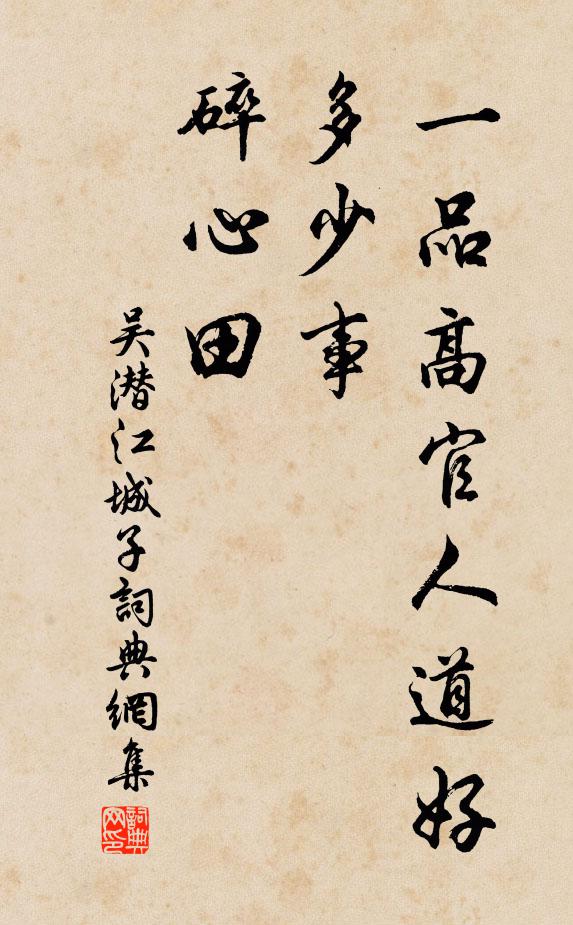 一品高官人道好
多少事
碎心田
吴潜江城子詞典網集
詞典网印